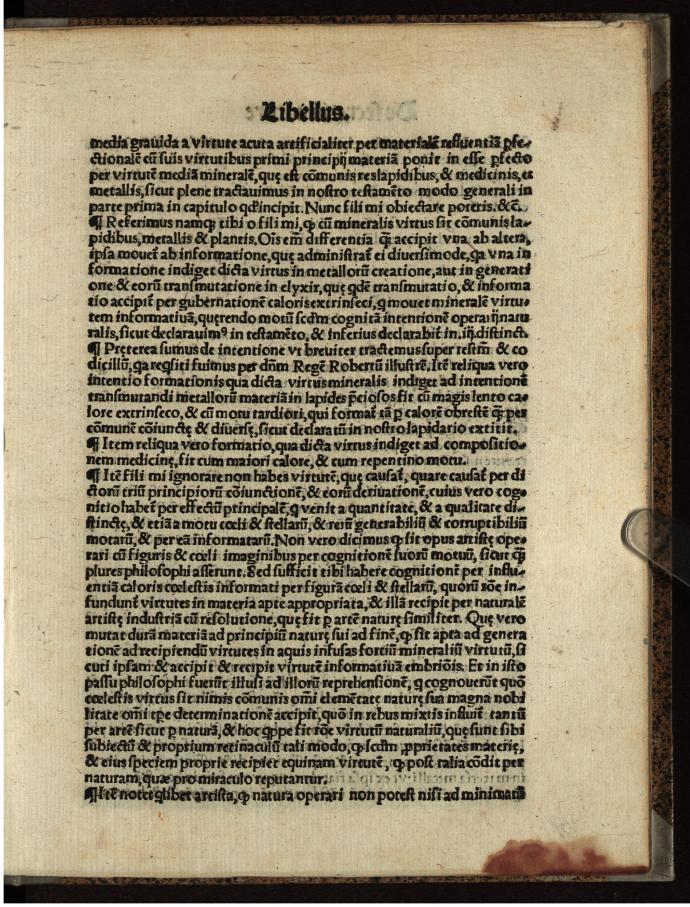 Libellus.
media grauida a virtute acuta artificialiter per materialẽ influentiã ꝑfe-
ctionalẽ cũ suis virtutibus primi principij materiã ponit in esse ꝑfecto
per virtutẽ mediã mineralẽ, quę est cõmunis res lapidibus, & medicinis, et
metallis, sicut plene tractauimus in nostro testamẽto modo generali in
parte prima in capitulo qđ incipit. Nunc fili mi obiectare poteris. &c̃.
¶ Referimus namq; tibi o fili mi, ꝙ cũ mineralis virtus sit cõmunis la-
pidibus, metallis & plantis. Oĩs em̃ differentia q̃ accipit vna ab altera,
ipsa mouet̃ ab informatione, quę administrat̃ ei diuersimode, q̃a vna in
formatione indiget dicta virtus in metallorũ creatione, aut in generati
one & eorũ transmutatione in elyxir, quę qđẽ transmutatio, & informa
tio accipit̃ per gubernationẽ caloris extrinseci, q mouet mineralẽ virtu-
tem informatiuã, quęrendo motũ scđm cognitã intentionẽ operarij natu
ralis, sicut declarauimꝰ in testamẽto, & inferius declarabit̃ in .iij. distinct.
¶ Pręterea sumus de intentione vt breuiter tractemus super testm̃ & co
dicillũ, q̃a req̃siti fuimus per dñm Regẽ Robertũ illustrẽ. Itẽ reliqua vero
intentio formationis qua dicta virtus mineralis indiget ad intentionẽ
transmutandi metallorũ materiã in lapides p̃ciosos fit cũ magis lento ca-
lore extrinseco, & cũ motu tardiori, qui format̃ tã ꝑ calorẽ obrestẽ q̃ per
cõmunẽ cõiunctę & diuersę, sicut declaratũ in nostro lapidario extitit.
¶ Item reliqua vero formatio, qua dicta virtus indiget ad compositio-
nem medicinę, fit cum maiori calore, & cum repentino motu.
¶ Itẽ fili mi ignorare non habes virtutẽ, quę causat̃, quare causat̃ per di
ctorũ triũ principiorũ cõiunctionẽ, & eorũ deriuationẽ, cuius vero cog-
nitio habet̃ per effectũ principalẽ, q venit a quantitate, & a qualitate di-
stinctę, & etiã a motu cœli & stellarũ, & rerũ generabiliũ & corruptibiliũ
motarũ, & per eã informatarũ. Non vero dicimus ꝙ sit opus artistę ope-
rari cũ figuris & cœli imaginibus per cognitionẽ suorũ motuũ, sicut q̃
plures philosophi asserunt. Sed sufficit tibi habere cognitionẽ per influ-
entiã caloris cœlestis informati per figurã cœli & stellarũ, quorũ rõe in-
fundunt̃ virtutes in materia apte appropriata, & illã recipit per naturalẽ
artistę industriã cũ resolutione, quę fit ꝑ artẽ naturę similiter. Quę vero
mutat durã materiã ad principiũ naturę sui ad finẽ, ꝙ sit apta ad genera
tionẽ ad recipiendũ virtutes in aquis infusas fortiũ mineraliũ virtutũ, si
cuti ipsam & accipit & recipit virtutẽ informatiuã embriõis. Et in isto
passu philosophi fuerũt illusi ad illorũ reprehensionẽ, q cognouerũt quõ
cœlestis virtus sit nimis cõmunis om̃i elementatę naturę sua magna nobi
litate om̃i tp̃e determinationẽ accipit, quõ in rebus mixtis influit̃ tantũ
per artẽ sicut ꝑ naturã, & hoc q̃ppe fit rõe virtutũ naturaliũ, quę sunt sibi
subiectũ & proprium retinaculũ tali modo, ꝙ scđm ꝓprietates materię,
& eius speciem proprie recipiet equinam virtutẽ, ꝙ post talia cõdit per
naturam, quæ pro miraculo reputantur.
¶ Itẽ notet q̃libet artista, ꝙ natura operari non potest nisi ad minimarũ